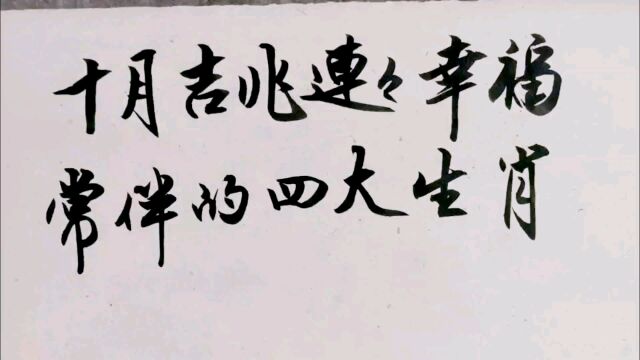 十月吉兆連々幸福
常伴的四大生肖